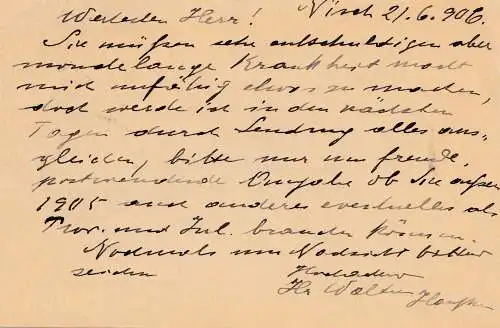 Nisch 21.6.906.
Wertester Herr!
Sie müßen sehr entschuldigen aber
mondelange Krankheit macht
mich unfähig etwas zu machen,
doch werde ich in den nächsten
Tagen durch Sendung alles aus-
gleichen, bitte nur um
postwendende Angabe ob Sie außer
1905 auch anderes eventuelles als
und Jul. brauchen können.
Nochmals um Nachsicht bittend
zeichne
Hochachtend
Walter